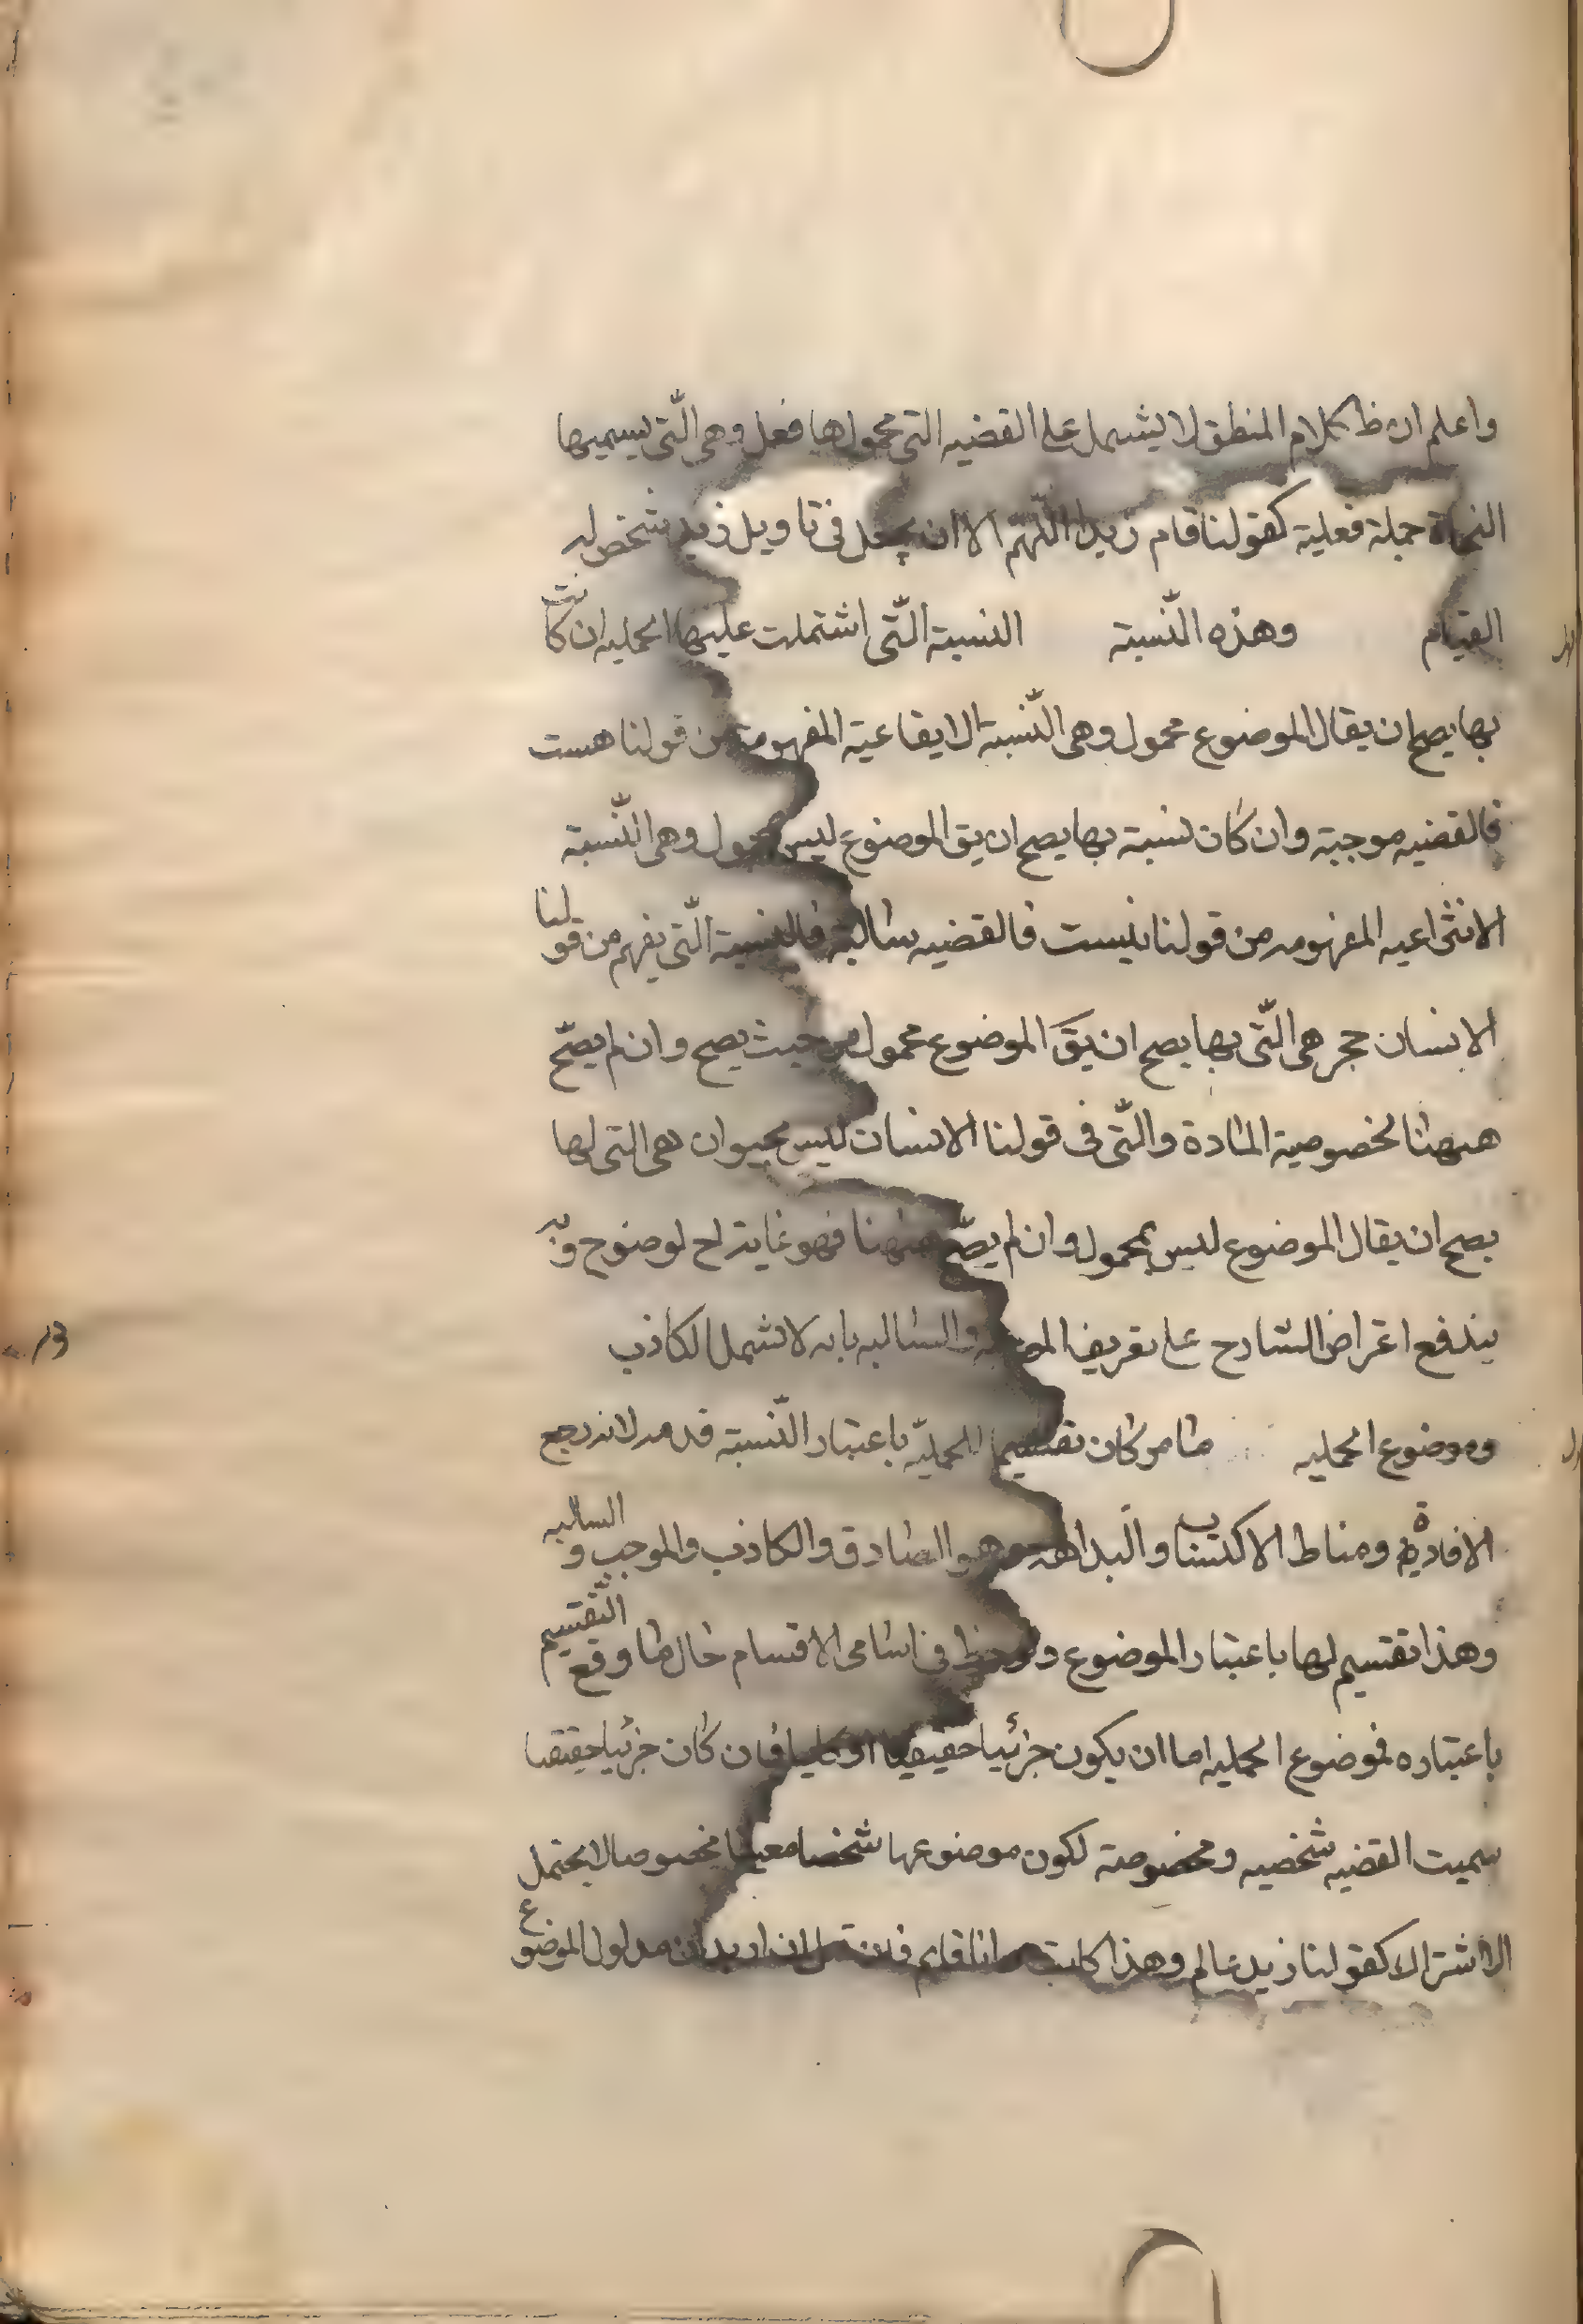 واعلم ان ظ كلام المنطق لا يشمل على القضيه التى محمولها فعل وهى الّتى يسميها
النحاة جملة فعلية كقولنا قام زيد اللّهمّ الا ان يجعل فى تاويل زيد شخص له
القيام وهذه النّسبة النسبة الّتى اشتملت عليها الحمليه ان كانت
بها يصح ان يقال الموضوع محمول وهى النّسبة الايقاعية المفهومة من قولنا هست
فالقضيه موجبة وان كان نسبة بها يصح ان يق الموضوع ليس محمول وهى النّسبة
الانتزاعيه المفهومه من قولنا نيست فالقضيه سالبة فالنسبة الّتى يفهم من قولنا
الانسان حجر هى الّتى بها يصح ان يَق الموضوع محمول من حيث يصح وان لم يصحّ
ههنا لخصوصية المادة والّتى فى قولنا الانسان ليس بحيوان هى التى لها
يصح ان يقال الموضوع ليس بمحمول وان لم يصحّ ههنا فهو غاية لوضوح وبه
يندفع اعتراض الشارح على تعريف الموجبة والسالبه بانه لا تشمل الكاذب
وموضوع الحمليه ما مر كان تقسيما للحمليّه باعتبار النّسبة قدمه لانه رجع
الافادة ومناط الاكتساب والبداهة وهو الصادق والكاذب والموجب والسالبه
وهذا تقسيم لها باعتبار الموضوع ولوحظ فى اسامى الاقسام حال ما وقع التّقسيم
باعتباره فموضوع الحمليه اما ان يكون جزئيا حقيقيا او كليا فان كان جزئيا حقيقيا
سميت القضيه شخصيه ومخصوصة لكون موضوعها شخصا معينا مخصوصا لا يحتمل
الاشتراك كقولنا زيد عالم وهذا كاتب وانا قايم فان قيل ان اريد ان مدلول الموضوع